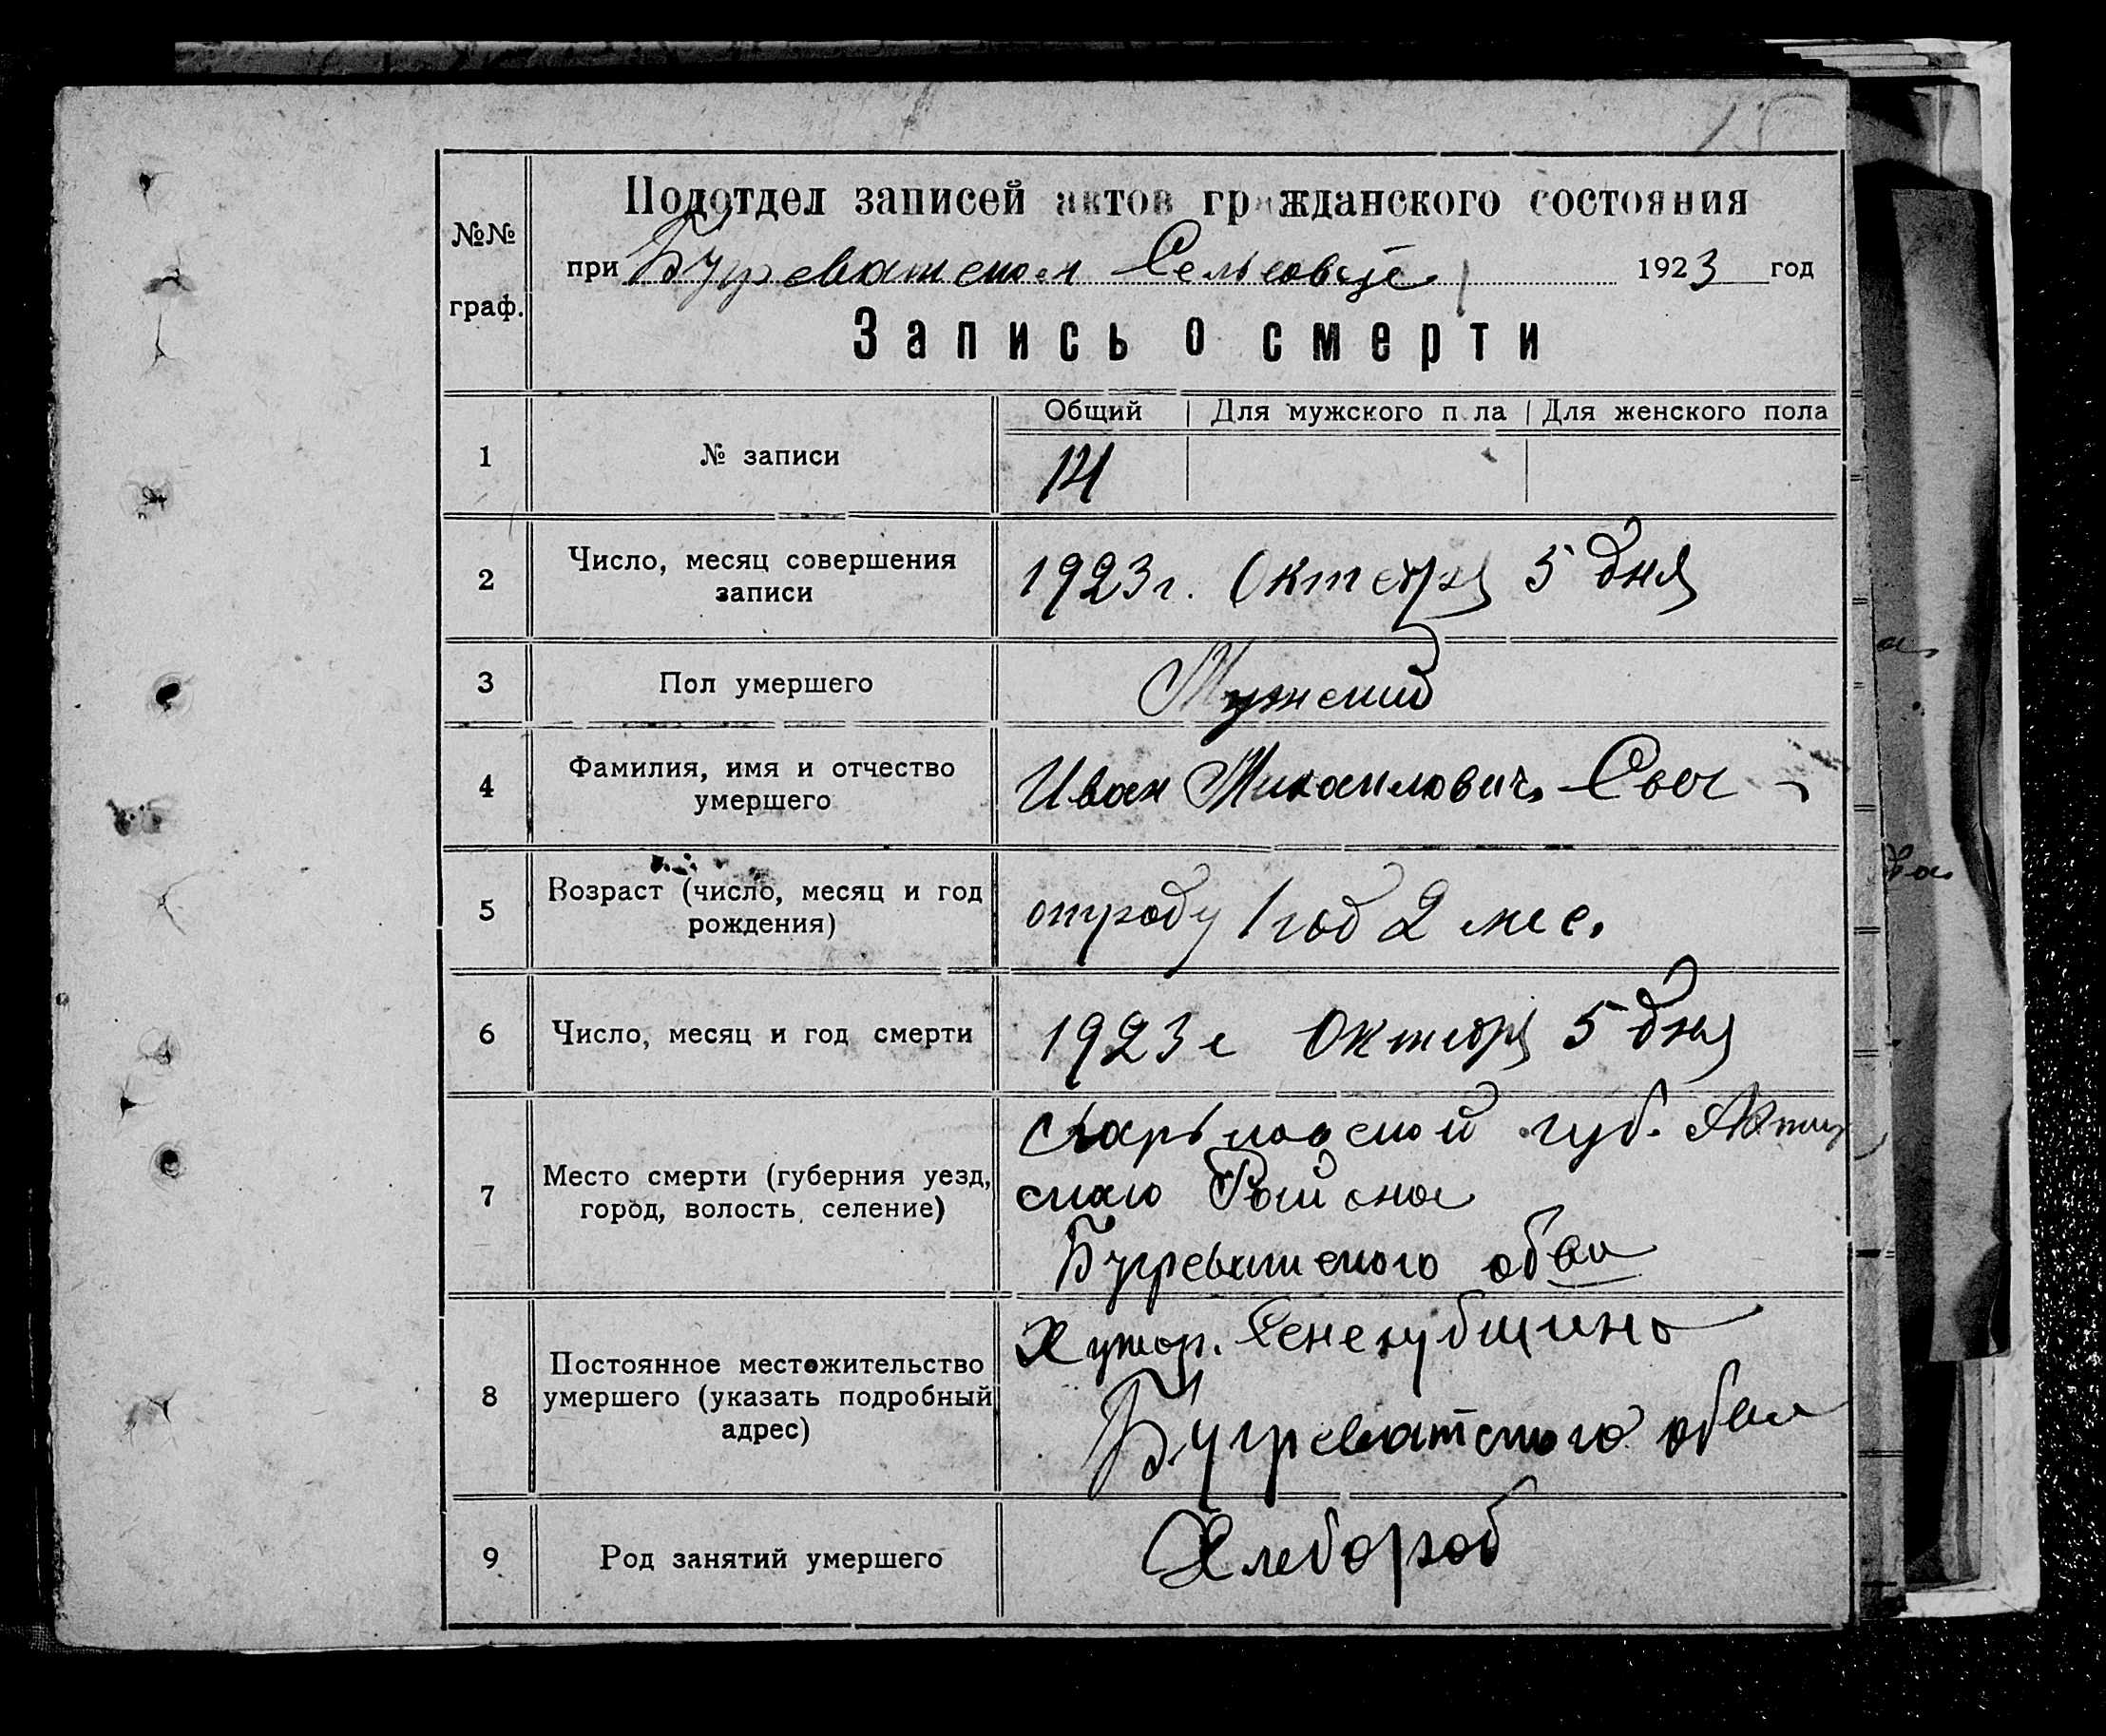 15
Подотдел записей актов гражданского состояния
№№
граф.
при Бугреватском Сельсовете 1923 год
Запись о смерти
Общий Для мужского пола Для женского пола
1 № записи 14
2 Число, месяц совершения
записи
1923 г. Октября 5 дня
3 Пол умершего Мужский
4 Фамилия, имя и отчество
умершего
Иван Михаилович
5 Возраст (число, месяц и год
рождения)
отроду 1 год 2 мес.
6 Число, месяц и год смерти 1923 г Октебря 5 дня
7 Место смерти (губерния уезд,
город, волость, селение)
Харьковской губ.
ского Района
Бугреватского обва
8 Постоянное местожительство
умершего (указать подробный
адрес)
Хутор.
Бугреватского обва
9 Род занятий умершего Хлебороб